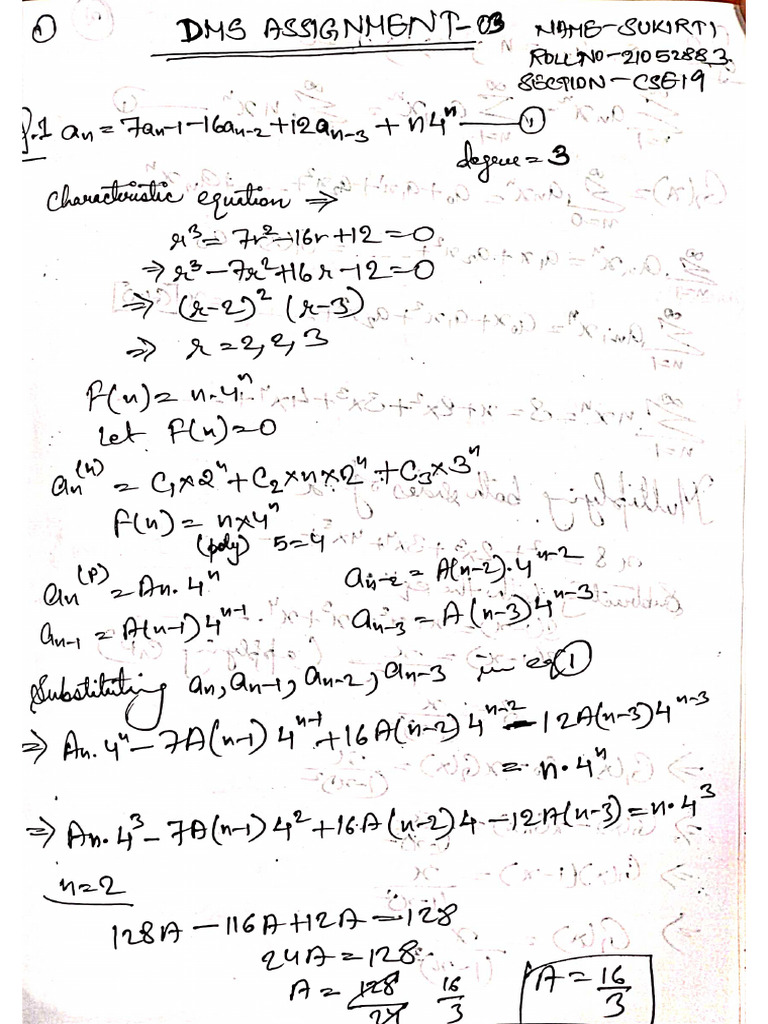 ①
DMS ASSIGNMENT-03
NAME-SUKIRTI
ROLL NO-21052883
SECTION-CSE19
Q.1 aₙ = 7aₙ₋₁ - 16aₙ₋₂ + 12aₙ₋₃ + n4ⁿ —— ①
degree = 3
Characteristic equation ⇒
r³ = 7r² - 16r + 12 = 0
⇒ r³ - 7r² + 16r - 12 = 0
⇒ (r-2)² (r-3)
⇒ r = 2, 2, 3
F(n) = n.4ⁿ
Let F(n) = 0
aₙ⁽ʰ⁾ = C₁×2ⁿ + C₂×n×2ⁿ + C₃×3ⁿ
F(n) = n×4ⁿ
(poly) S=4
aₙ⁽ᵖ⁾ = An.4ⁿ
aₙ₋₂ = A(n-2).4ⁿ⁻²
aₙ₋₁ = A(n-1)4ⁿ⁻¹
aₙ₋₃ = A(n-3)4ⁿ⁻³
Substituting aₙ, aₙ₋₁, aₙ₋₂, aₙ₋₃ in eq ①
⇒ An.4ⁿ - 7A(n-1)4ⁿ⁻¹ + 16A(n-2)4ⁿ⁻² - 12A(n-3)4ⁿ⁻³
= n.4ⁿ
⇒ An.4³ - 7A(n-1)4² + 16A(n-2)4 - 12A(n-3) = n.4³
n=2
128A - 116A + 12A = 128
24A = 128
A = 128/24 16/3
A = 16/3